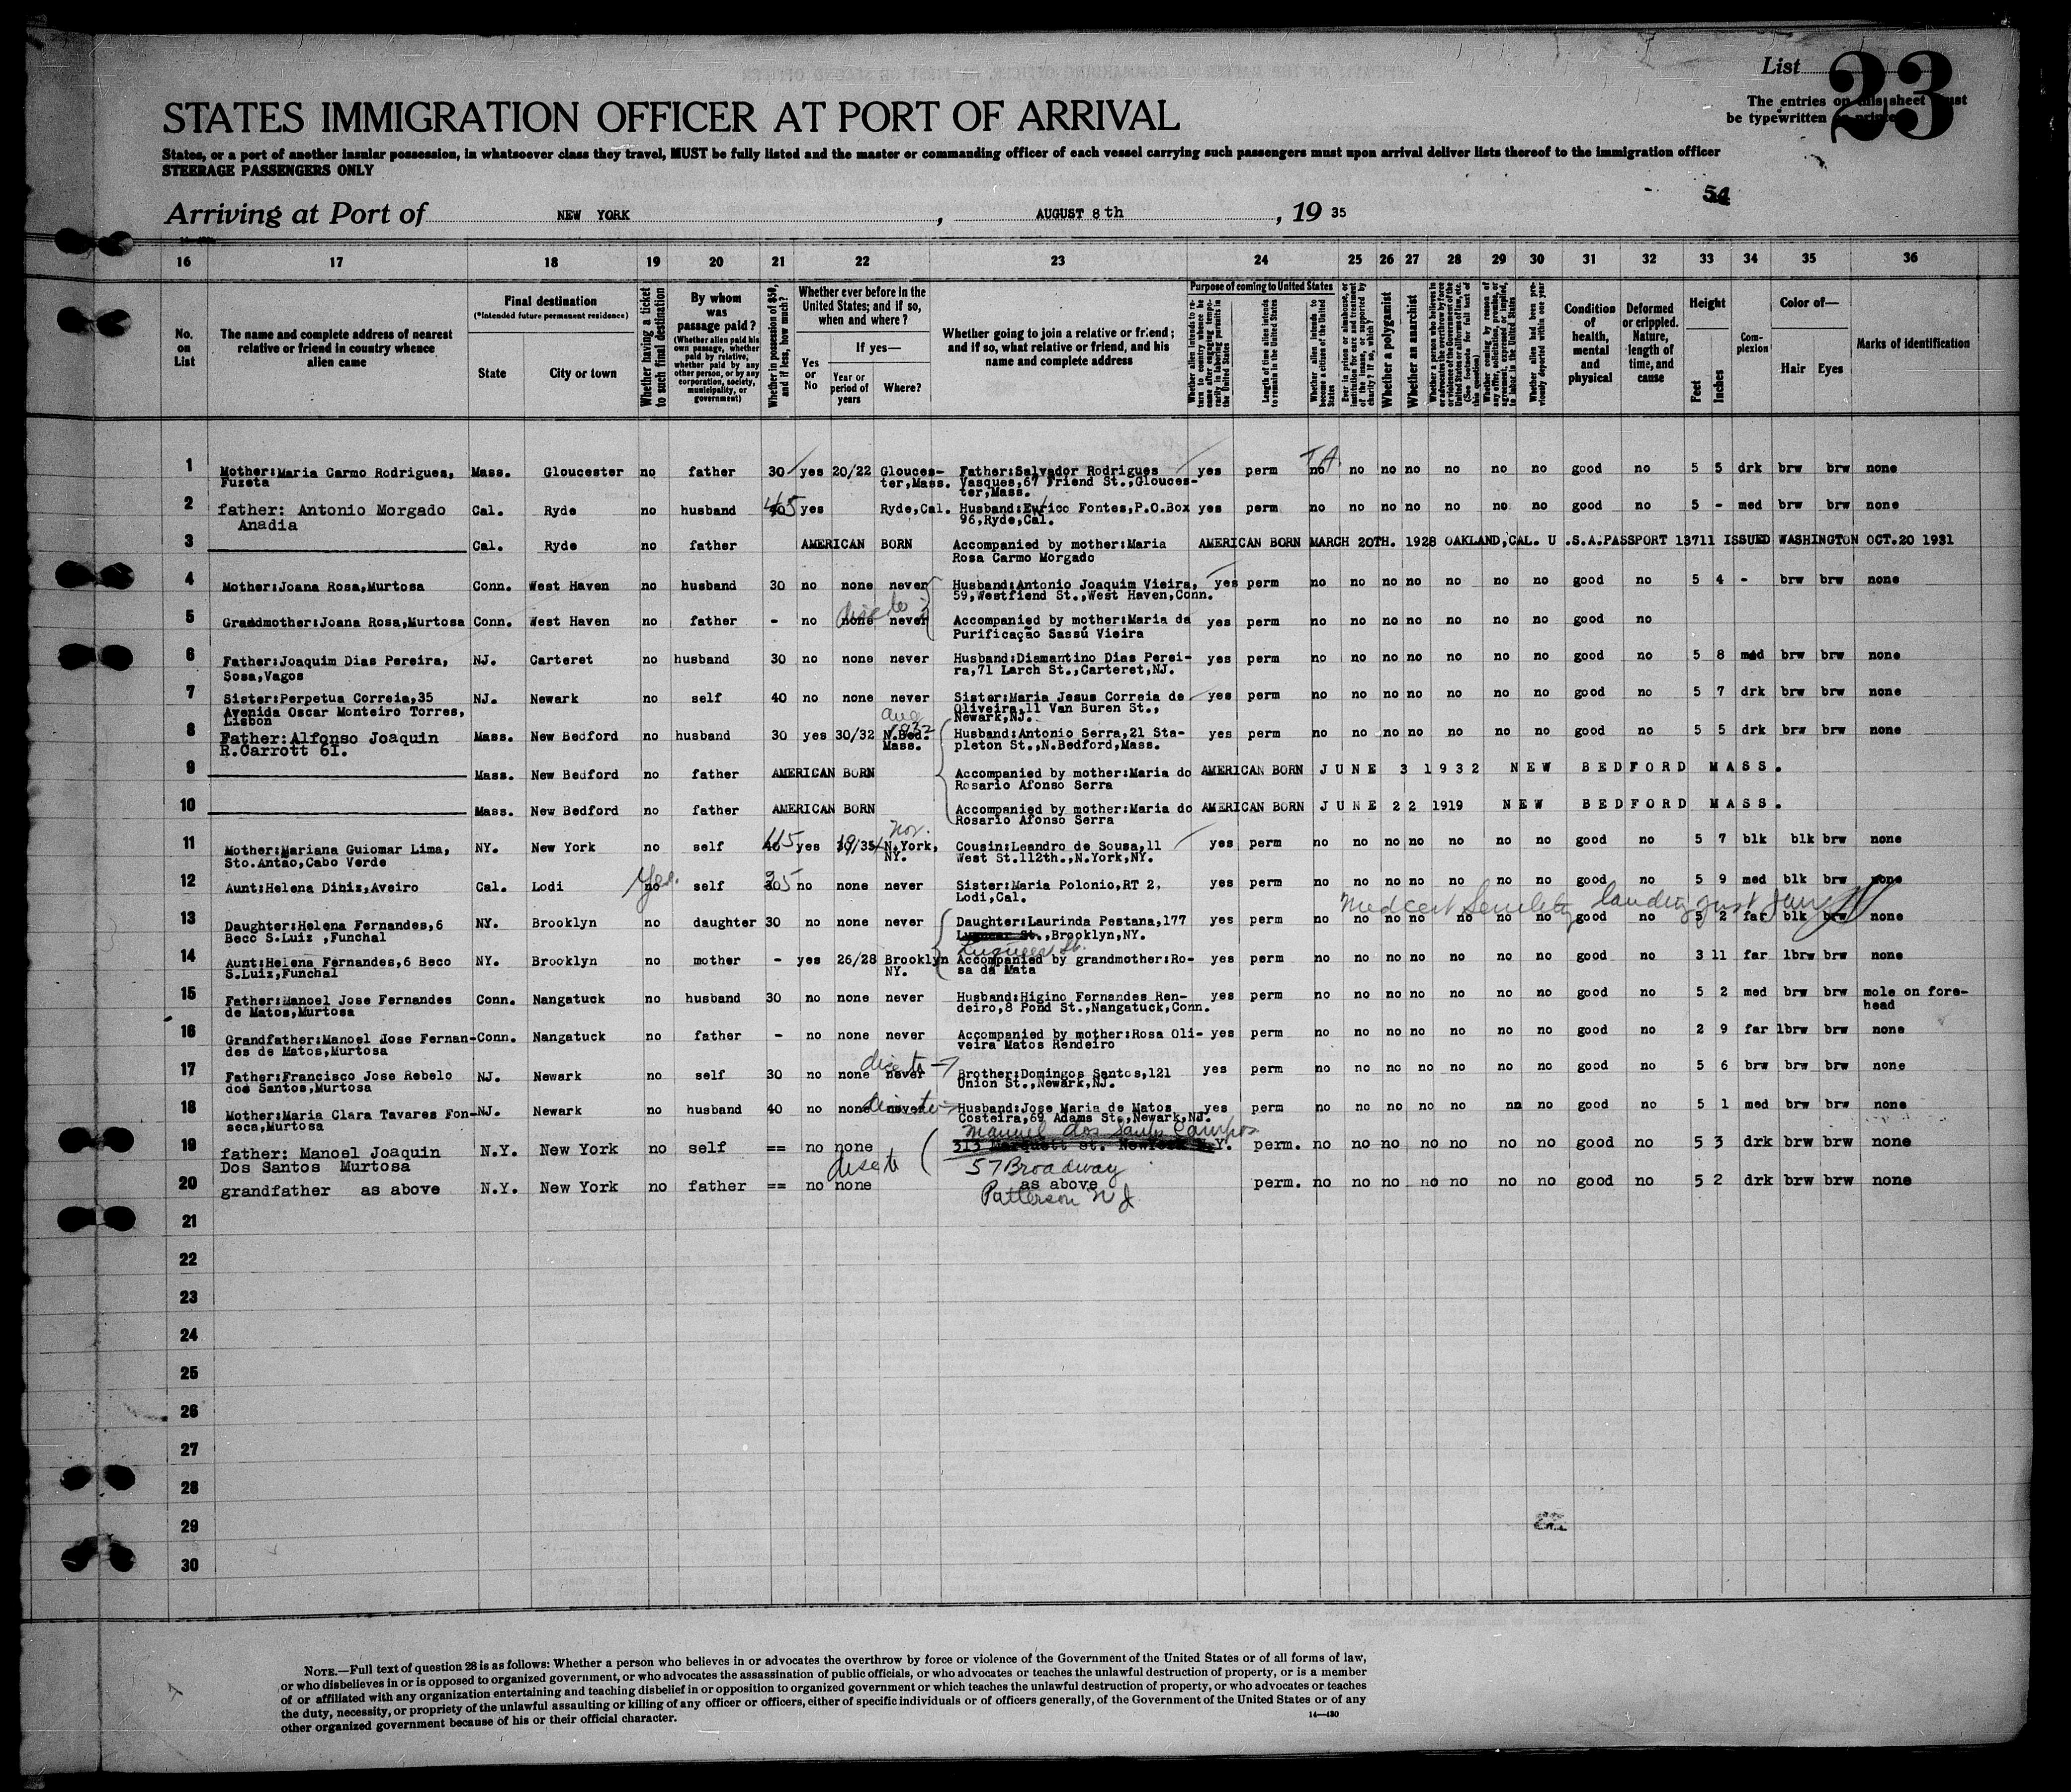 List 23
The entries on this sheet must
be typewritten or printed
STATES IMMIGRATION OFFICER AT PORT OF ARRIVAL
States, or a port of another insular possession, in whatsoever class they travel, MUST be fully listed and the master or commanding officer of each vessel carrying such passengers must upon arrival deliver lists thereof to the immigration officer
STEERAGE PASSENGERS ONLY
54
Arriving at Port of NEW YORK , AUGUST 8th , 19 35
16 17 18 19 20 21 22 23 24 25 26 27 28 29 30 31 32 33 34 35 36
No. on List
The name and complete address of nearest relative or friend in country whence alien came
Final destination
(*Intended future permanent residence)
State City or town
Whether having a ticket to such final destination
By whom was passage paid?
(Whether alien paid his own passage, whether paid by relative, whether paid by any other person, or by any corporation, society, municipality, or government)
Whether in possession of $50, and if less, how much?
Whether ever before in the United States; and if so, when and where?
Yes or No
If yes—
Year or period of years
Where?
Whether going to join a relative or friend; and if so, what relative or friend, and his name and complete address
Purpose of coming to United States
Whether alien intends to return to country whence he came after engaging temporarily in laboring pursuits in the United States
Length of time alien intends to remain in the United States
Whether alien intends to become a citizen of the United States
Ever in prison or almshouse, or institution for care and treatment of the insane, or supported by charity? If so, which?
Whether a polygamist
Whether an anarchist
Whether a person who believes in or advocates the overthrow by force or violence of the Government of the United States or all forms of law, etc. (See footnote for full text of this question)
Whether coming by reason of any offer, solicitation, promise, or agreement, expressed or implied, to labor in the United States
Whether alien had been previously deported within one year
Condition of health, mental and physical
Deformed or crippled. Nature, length of time, and cause
Height
Feet Inches
Complexion
Color of—
Hair Eyes
Marks of identification
1 Mother:Maria Carmo Rodrigues, Mass. Gloucester no father 30 yes 20/22 Glouces- Father:Salvador Rodrigues yes perm no no no no no no no good no 5 5 drk brw brw none
Fuzeta ter,Mass. Vasques,67 Friend St.,Glouces-
ter,Mass.
2 father: Antonio Morgado Cal. Ryde no husband 45 yes Ryde,Cal. Husband:Eurico Fontes,P.O.Box yes perm no no no no no no no good no 5 - med brw brw none
Anadia 96,Ryde,Cal.
3 Cal. Ryde no father AMERICAN BORN Accompanied by mother:Maria AMERICAN BORN MARCH 20TH. 1928 OAKLAND,CAL. U .S.A.PASSPORT 13711 ISSUED WASHINGTON OCT.20 1931
Rosa Carmo Morgado
4 Mother:Joana Rosa,Murtosa Conn. West Haven no husband 30 no none never Husband:Antonio Joaquim Vieira, yes perm no no no no no no no good no 5 4 - brw brw none
59,Westfiend St.,West Haven,Conn.
5 Grandmother:Joana Rosa,Murtosa Conn. West Haven no father - no none never Accompanied by mother:Maria da yes perm no no no no no no no good no
Purificação Sassú Vieira
6 Father:Joaquim Dias Pereira, NJ. Carteret no husband 30 no none never Husband:Diamantino Dias Perei- yes perm no no no no no no no good no 5 8 med brw brw none
Sosa,Vagos ra,71 Larch St.,Carteret,NJ.
7 Sister:Perpetua Correia,35 NJ. Newark no self 40 no none never Sister:Maria Jesus Correia de yes perm no no no no no no no good no 5 7 drk brw brw none
Avenida Oscar Monteiro Torres, Oliveira,11 Van Buren St.,
Lisbon Newark,NJ.
Aug 1932
8 Father:Alfonso Joaquin Mass. New Bedford no husband 30 yes 30/32 N.Bed. Husband:Antonio Serra,21 Sta- yes perm no no no no no no no good no 5 5 drk brw brw none
R.Carrott 61. Mass. pleton St.,N.Bedford,Mass.
9 Mass. New Bedford no father AMERICAN BORN Accompanied by mother:Maria do AMERICAN BORN JUNE 3 1932 NEW BEDFORD MASS.
Rosario Afonso Serra
10 Mass. New Bedford no father AMERICAN BORN Accompanied by mother:Maria do AMERICAN BORN JUNE 22 1919 NEW BEDFORD MASS.
Rosario Afonso Serra
Nov.
11 Mother:Mariana Guiomar Lima, NY. New York no self yes N.York, Cousin:Leandro de Sousa,11 yes perm no no no no no no no good no 5 7 blk blk brw none
Sto.Antão,Cabo Verde NY. West St.112th.,N.York,NY.
12 Aunt:Helena Diniz,Aveiro Cal. Lodi no yes self no none never Sister:Maria Polonio,RT 2, yes perm no no no no no no no good no 5 9 med blk brw none
Lodi,Cal.
13 Daughter:Helena Fernandes,6 NY. Brooklyn no daughter 30 no none never Daughter:Laurinda Pestana,177 yes perm no no no no no no no good no 5 2 far blk brw none
Beco S.Luiz ,Funchal St.,Brooklyn,NY.
Med cert Senility
14 Aunt:Helena Fernandes,6 Beco NY. Brooklyn no mother - yes 26/28 Brooklyn Accompanied by grandmother:Ro- yes perm no no no no no no no good no 3 11 far lbrw brw none
S.Luiz,Funchal NY. sa da Mata
15 Father:Manoel Jose Fernandes Conn. Nangatuck no husband 30 no none never Husband:Higino Fernandes Ren- yes perm no no no no no no no good no 5 2 med brw brw mole on fore-
de Matos,Murtosa deiro,8 Pond St.,Nangatuck,Conn. head
16 Grandfather:Manoel Jose Fernan- Conn. Nangatuck no father - no none never Accompanied by mother:Rosa Oli- yes perm no no no no no no no good no 2 9 far lbrw brw none
des de Matos,Murtosa veira Matos Rendeiro
17 Father:Francisco Jose Rebelo NJ. Newark no self 30 no none never Brother:Domingos Santos,121 yes perm no no no no no no no good no 5 6 brw brw brw none
dos Santos,Murtosa Union St.,Newark,NJ.
18 Mother:Maria Clara Tavares Fon- NJ. Newark no husband 40 no none never Husband:Jose Maria de Matos yes perm no no no no no nn no good no 5 1 med brw brw none
seca,Murtosa Costeira,69 Adams St.,Newark,NJ.
Manuel dos Santos Campos
19 father: Manoel Joaquin N.Y. New York no self == no none perm. no no no no no no no good no 5 3 drk brw brw none
Dos Santos Murtosa 57 Broadway
20 grandfather as above N.Y. New York no father == no none as above perm. no no no no no no no good no 5 2 drk brw brw none
Patterson NJ
21
22
23
24
25
26
27
28
29
30
NOTE.—Full text of question 28 is as follows: Whether a person who believes in or advocates the overthrow by force or violence of the Government of the United States or of all forms of law,
or who disbelieves in or is opposed to organized government, or who advocates the assassination of public officials, or who advocates or teaches the unlawful destruction of property, or is a member
of or affiliated with any organization entertaining and teaching disbelief in or opposition to organized government or which teaches the unlawful destruction of property, or who advocates or teaches
the duty, necessity, or propriety of the unlawful assaulting or killing of any officer or officers, either of specific individuals or of officers generally, of the Government of the United States or of any
other organized government because of his or their official character.
14—430